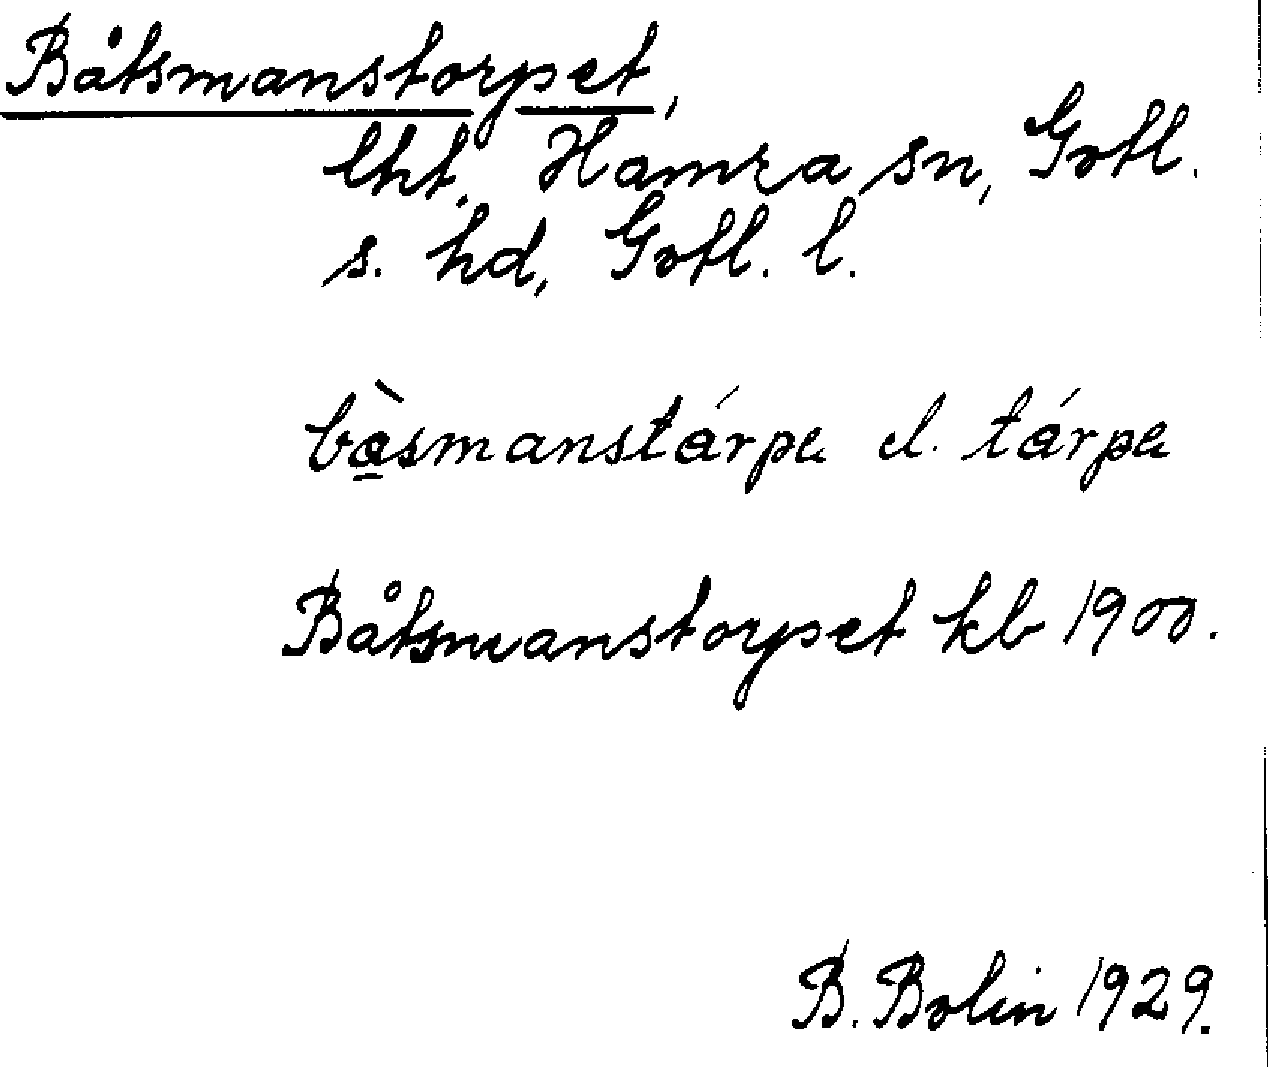 Båtsmanstorpet,
lht, Hamra sn, Gotl.
s. hd, Gotl. l.
bà̲smanstárpe el. tárpe
Båtsmanstorpet kb 1900.
B. Bolin 1929.